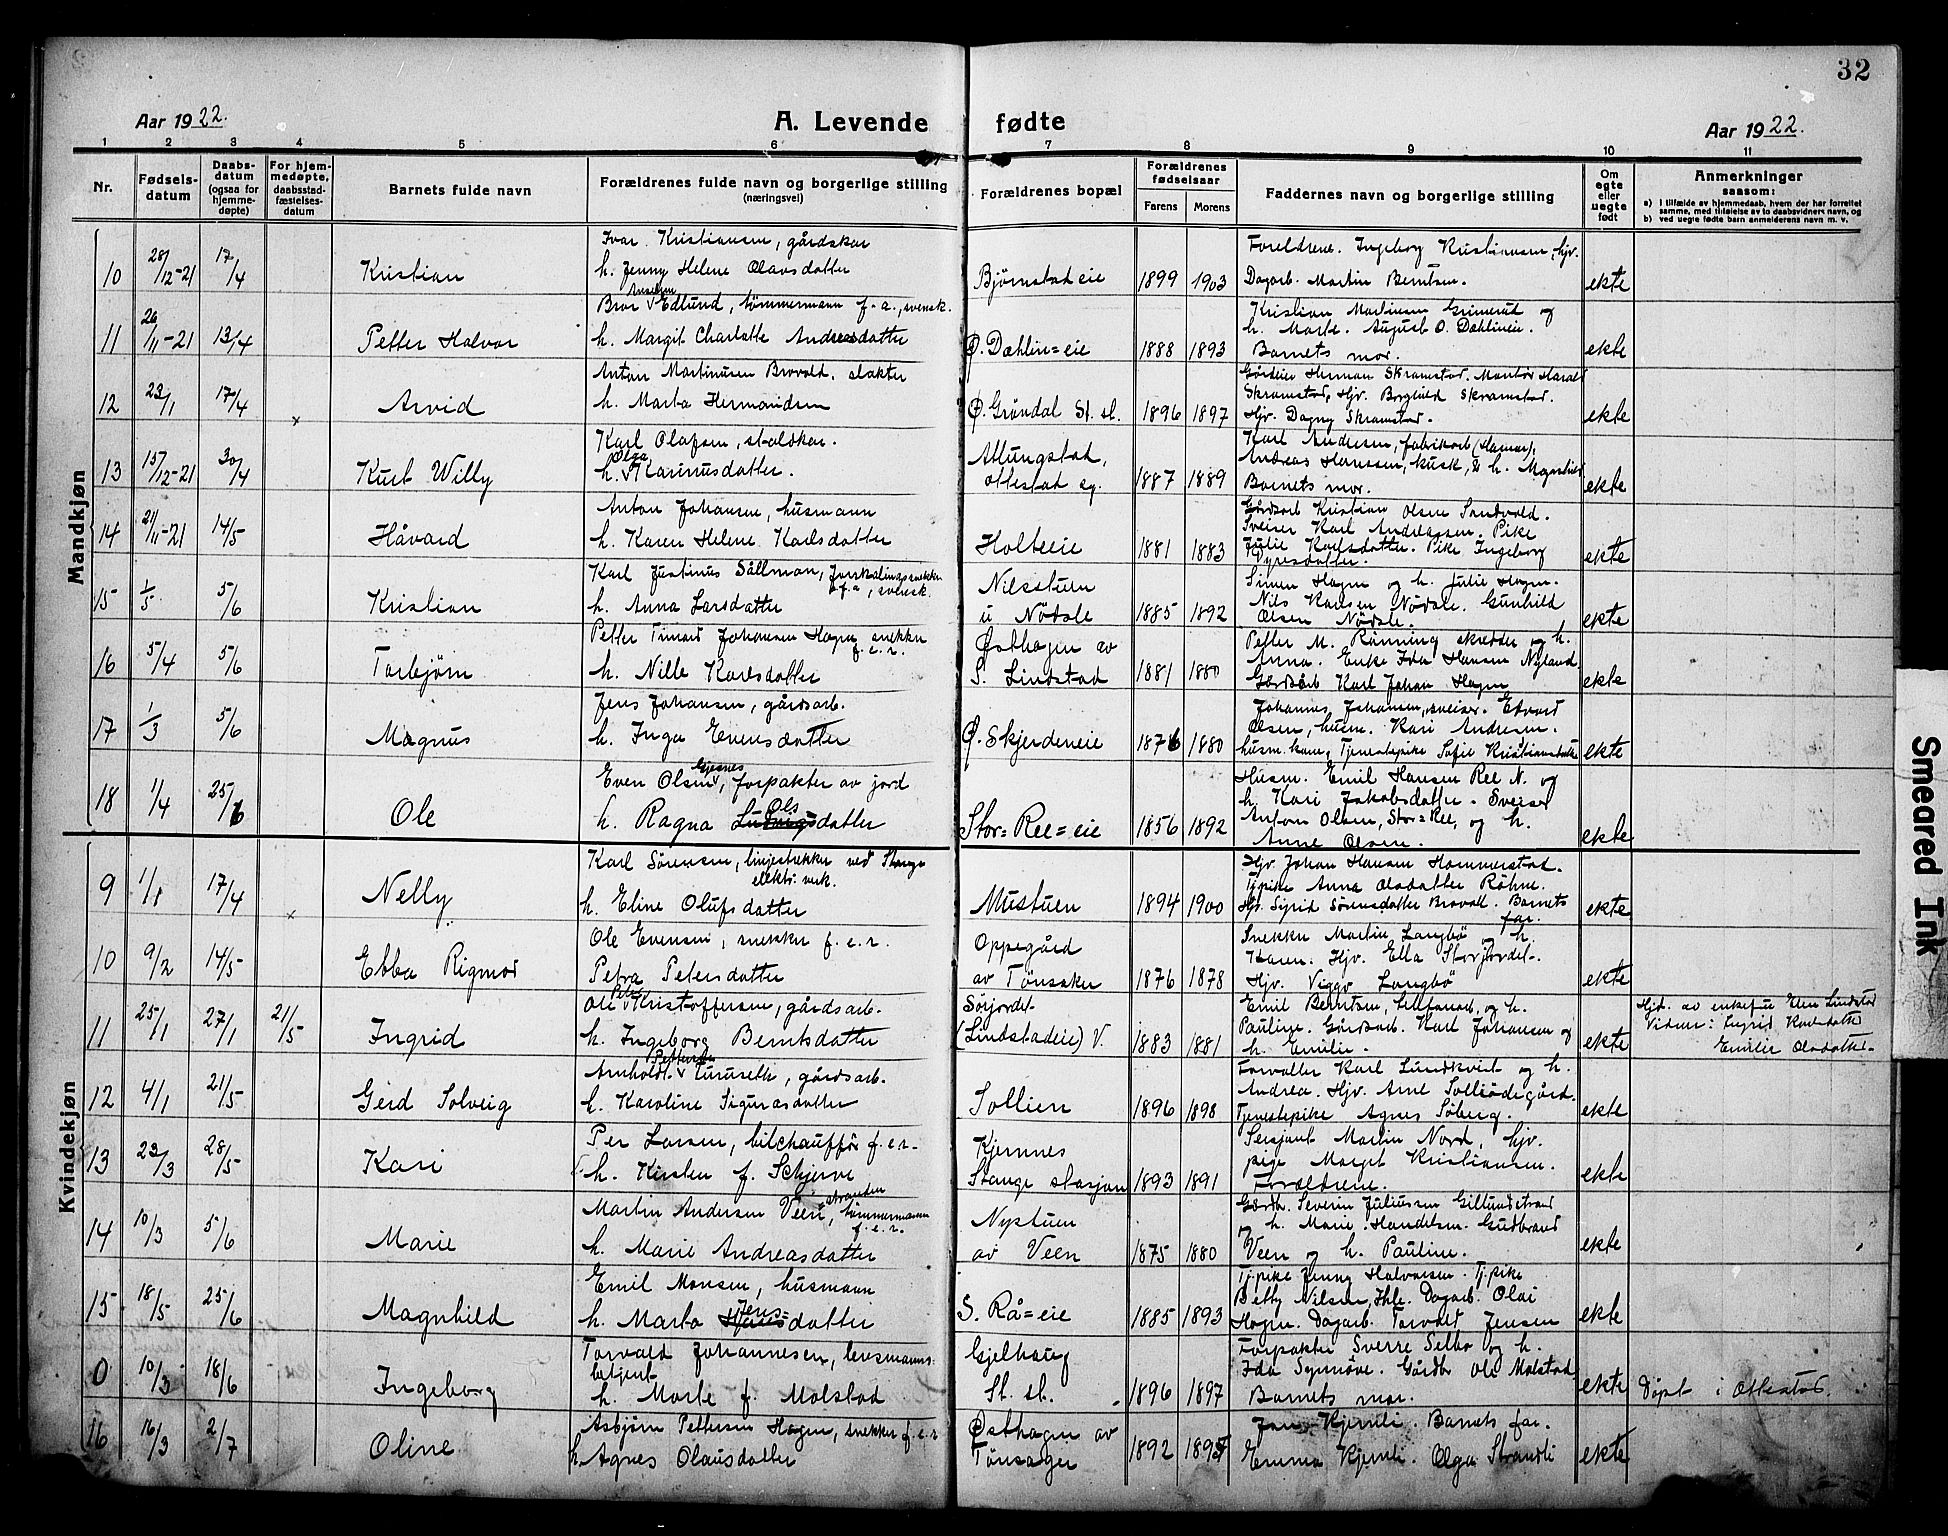 32
Aar 1922. A. Levende fødte Aar 1922.
1 2 3 4 5 6 7 8 9 10 11
Nr. Fødselsdatum Daabsdatum (ogsaa for hjemmedøpte) For hjemmedøpte, daabsstadfæstelsesdatum Barnets fulde navn Forældrenes fulde navn og borgerlige stilling (næringsvei) Forældrenes bopæl Forældrenes fødselsaar Farens Morens Faddernes navn og borgerlige stilling Om egte eller uegte født Anmerkninger saasom:
a) I tilfælde av hjemmedaab, hvem der har forrettet samme, med tilføielse av to daabsvidners navn, og
b) ved uegte fødte barn anmelderens navn m. v.
Mandkjøn
Ivar Kristiansen, gårdskar Foreldrene. Ingeborg Kristiansen, hjv.
10 28/12-21 17/4 Kristian h. Jenny Helene Olavsdatter Bjørnstad eie 1899 1903 Dagarb. Martin Berntsen. ekte
Bror Edlund, tømmermann f. a., svensk. Kristian Martinsen Grimerud og
11 26/11-21 13/4 Petter Halvor h. Margit Charlotte Andreasdatter Ø. Dæhlin=eie 1888 1893 h. Marte. August O. Dæhlineie.
Barnets mor. ekte
Anton Martinusen Brovold, slakter Gårdeier Herman Skramstad. Montør Harald
12 23/1 17/4 x Arvid h. Marta Hermansen Ø. Grøndal St. sl. 1896 1897 Skramstad, Hjv. Borghild Skramstad.
Hjv. Dagny Skramstad. ekte
Karl Olafsen, staldkar. Atlungstad, Karl Andersen, fabrikarb (Hamar),
13 15/12-21 30/4 Kurt Willy h. Olga Karinusdatter. ottestad sg. 1887 1889 Andreas Hanssen, kusk, & h. Magnhild
Barnets mor. ekte
Anton Johansen, husmann Gårdsarb Kristian Olsen Sandvold.
14 21/11-21 14/5 Håvard h. Karen Helene Karlsdatter Holteeie 1881 1883 Sveiser Karl Andreassen. Pike
Julie Karlsdatter. Pike Ingeborg
ekte
Karl Justinus Sållman, f. a., svensk. Nilsstuen Simen Hagen og h. Julie Hagen.
15 1/5 5/6 Kristian h. Anna Larsdatter u Nødsle 1885 1892 Nils Karlsen Nødsle. Gunhild
Olsen Nødsle. ekte
Petter Johansen Hagen snekker f. e. r. Østhagen av Petter M. Rønning skredder og h.
16 5/4 5/6 Torbjørn h. Nille Karlsdatter S. Lindstad 1881 1880 Anna. Enke Ida Hansen Nyland.
Gårdsarb Karl Johan Hagen ekte
Jens Johansen, gårdsarb. Johannes Johansen, sveiser. Edvard
17 1/3 5/6 Magnus h. Inga Evensdatter Ø. Skjerdeneie 1876 1880 Olsen, husm. Kari Andersen.
husm. kone, Tjenestepike Sofie ekte
Even Olsen Gjesnes, forpakter av jord Husm. Emil Hansen Ree N. og
18 1/4 25/6 Ole h. Ragna Olsdatter Stor=Ree=eie 1856 1892 h. Kari Jakobsdatter. Sveiser
Anton Olsen, Stor=Ree, og h.
Anne Olsen. ekte
Kvindekjøn
Karl Sørensen, linjestrekker ved Stange elektr. verk. Hjv. Johan Hansen Hammerstad.
9 1/1 17/4 x Nelly h. Eline Olufsdatter Mustuen 1894 1900 Tj.pike Anna Olsdatter Røhne.
Hjv. Sigrid Sørensdatter Brovoll. Barnets
far. ekte
Ole Evensen, snekker f. e. r. Oppegård Snekker Martin Langbø og h.
10 9/2 14/5 Ebba Rigmor Petra Petersdatter av Tønsaker 1876 1878 Karen. Hjv. Ella Storjordet.
Hjv. Viggo Langbø ekte
Ole Peter Kristoffersen, gårdsarb. Søjordet Emil Berntsen, og h. Hjd. av enkefru Elen Lindstad
11 25/1 27/1 21/5 Ingrid h. Ingeborg Berntsdatter (Lindstadeie) V. 1883 1881 Pauline. Gårdsarb. Karl Johansen og Vidner: Ingrid Karlsdatter
h. Emilie. ekte Emilie Olsdatter.
Arnholdt Pettersen Tursreth, gårdsarb. Forvalter Karl Lundkvist og h.
12 4/1 21/5 Gerd Solveig h. Karoline Sigvardsdatter Sollien 1896 1898 Andrea. Hjv. Arne Solliødegård.
Tjenestepike Agnes Søberg. ekte
Per Larsen, bilchauffør f. e. r. Kjernnes Sersjant Martin Nord, hjv.
13 23/3 28/5 Kari h. Kirsten f. Schjerve Stange stasjon 1893 1891 pige Margit Kristiansen.
Forældrene. ekte
Martin Andersen Veenstranden, tømmermann f. e. r. Nystuen Gårdb. Severin Juliussen Gillundstrand
14 10/3 5/6 Marie h. Marie Andreasdatter av Veen 1875 1880 og h. Marie. Handelsm. Gudbrand
Veen og h. Pauline. ekte
Emil Monsen, husmann Tj.pike Jenny Halvorsen. Tj.pike
15 18/5 25/6 Magnhild h. Marta Jensdatter S. Rå=eie 1885 1893 Betty Nilsen, Dagarb. Olai
Hagen. Dagarb. Torvald Jensen ekte
Torvald Johannesen, lensmannsbetjent Gjelhaug Forpakter Sverre Selbo og h.
0 10/3 18/6 Ingeborg h. Marte f. Molstad St. st. 1896 1897 Ida Synnøve. Gårdbr Ole Molstad
Barnets mor. ekte Døpt i Ottestad.
Asbjørn Pettersen Hagen, snekker f. e. r Østhagen av Jan Kjemli. Barnets far.
16 16/3 2/7 Oline h. Agnes Olausdatter Tønsager 1892 1895 Emma Kjemli. Olga Strandli ekte
Smeared Ink